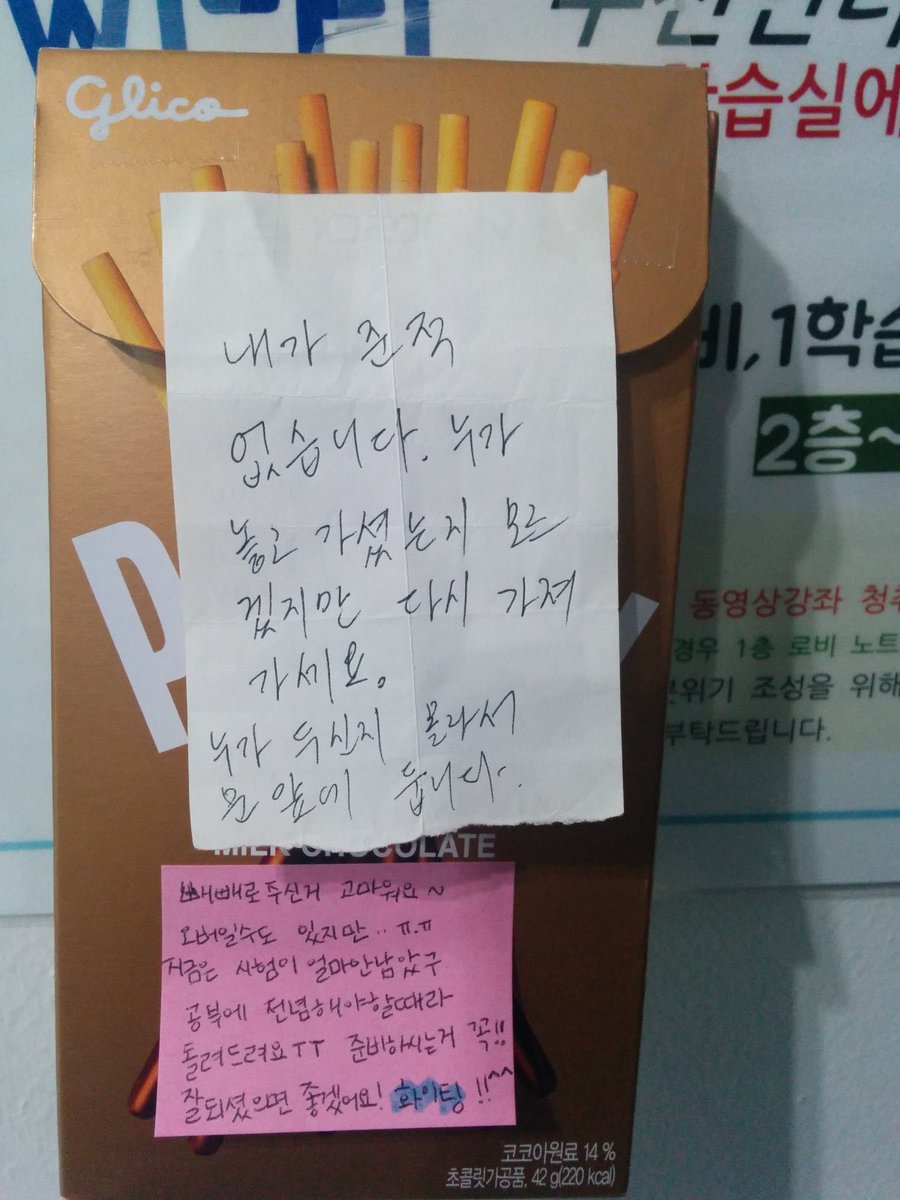 Glico
습실에
내가 준적
없습니다. 누가
놓고 가셨는지 모르
겠지만 다시 가져
가세요.
누가 두신지 몰라서
문 앞에 둡니다.
비,1학습
2층~
동영상강좌 청취
경우 1층 로비 노트
분위기 조성을 위해
부탁드립니다.
MILK CHOCOLATE
빼빼로주신거 고마워요~
오버일수도 있지만.. ㅠ.ㅠ
지금은 시험이 얼마안남았구
공부에 전념해야할때라
돌려드려요TT 준비하시는거 꼭!!
잘되셨으면 좋겠어요! 화이팅!!^^
코코아원료 14 %
초콜릿가공품, 42 g(220 kcal)